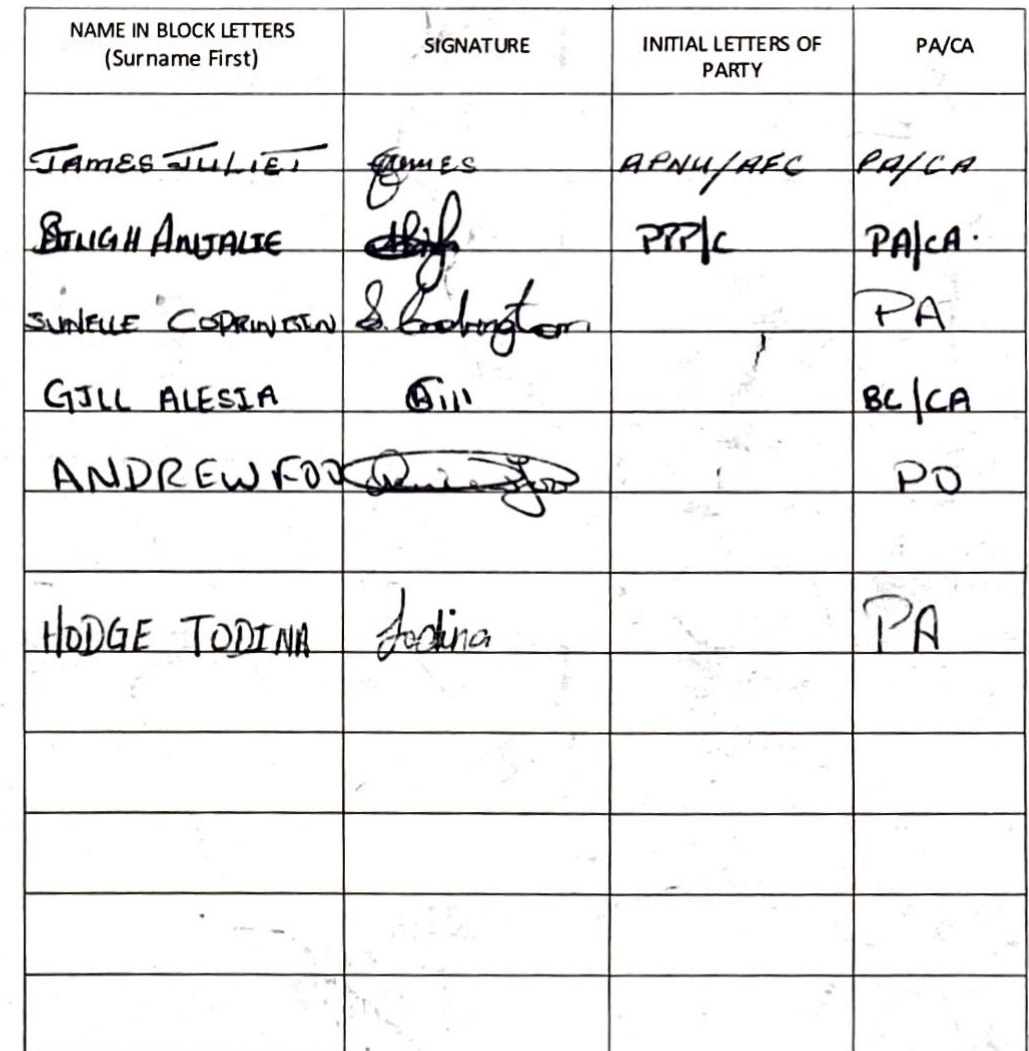 NAME IN BLOCK LETTERS (Surname First) SIGNATURE INITIAL LETTERS OF PARTY PA/CA
JAMES JULIET James APNU/AFC PA/CA
SINGH ANJALIE PPP/C PA/CA.
SUNELLE S. Codrington PA
GILL ALESIA Gill BC/CA
ANDREW FOO PO
HODGE TODINA Todina PA